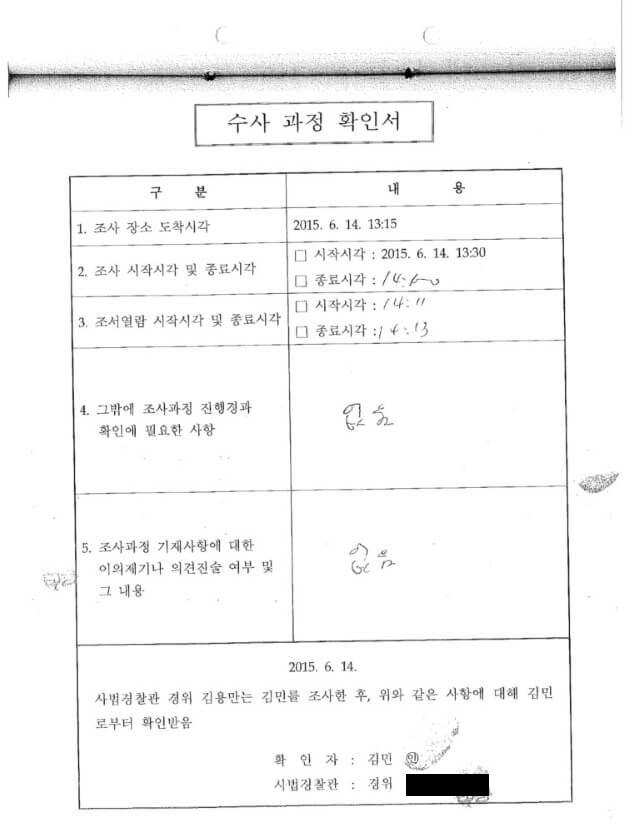 수사 과정 확인서
구 분 내 용
1. 조사 장소 도착시각 2015. 6. 14. 13:15
2. 조사 시작시각 및 종료시각
□ 시작시각 : 2015. 6. 14. 13:30
□ 종료시각 :
3. 조서열람 시작시각 및 종료시각
□ 시작시각 : 14:11
□ 종료시각 : 14:13
4. 그밖에 조사과정 진행경과
확인에 필요한 사항
없음
5. 조사과정 기재사항에 대한
이의제기나 의견진술 여부 및
그 내용
없음
2015. 6. 14.
사법경찰관 경위 김용만는 김민를 조사한 후, 위와 같은 사항에 대해 김민
로부터 확인받음
확 인 자 : 김민 인
시법경찰관 : 경위